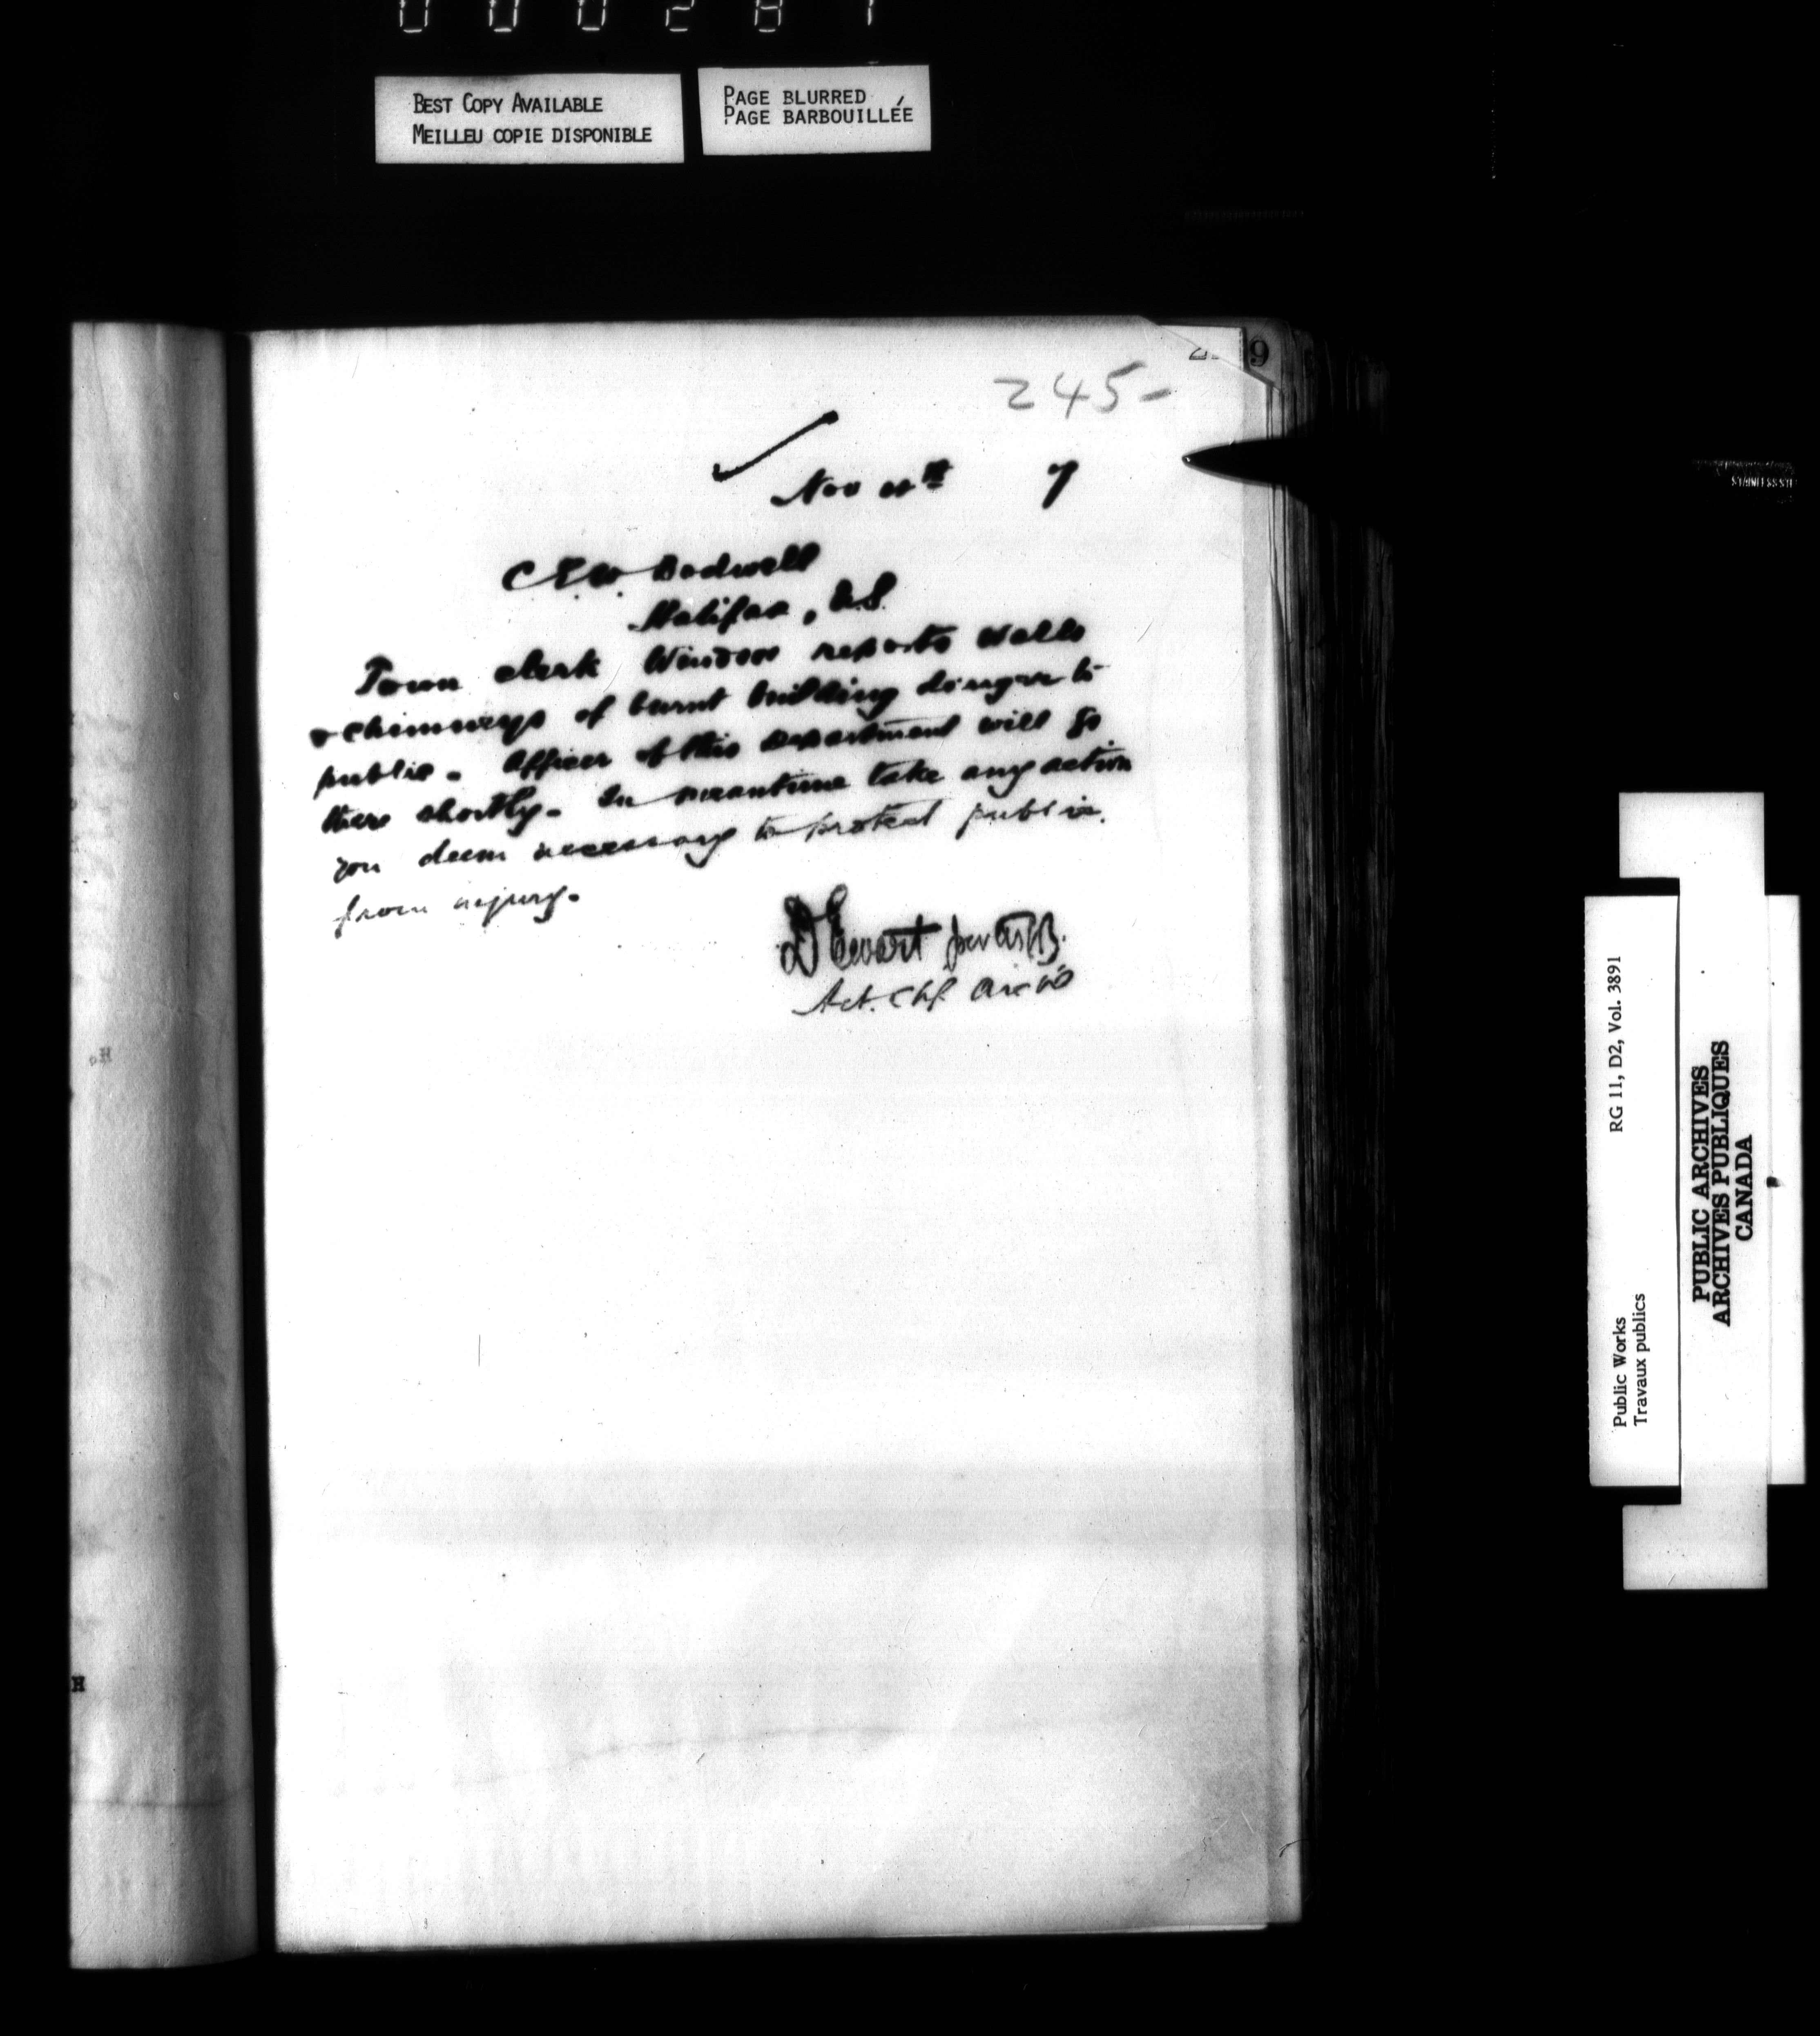 000287
BEST COPY AVAILABLE
MEILLEU COPIE DISPONIBLE
PAGE BLURRED
PAGE BARBOUILLÉE
9
245-
Nov 4th 7
C.E.W. Dodwell
Halifax, N.S.
Town clerk Windsor reports walls
& chimneys of burnt building danger to
public. Officer of this department will go
there shortly. In meantime take any action
you deem necessary to protect public
from injury.
D Ewart per
Act. Chf. Arch
STAINLESS ST
RG 11, D2, Vol. 3891
Public Works
Travaux publics
PUBLIC ARCHIVES
ARCHIVES PUBLIQUES
CANADA